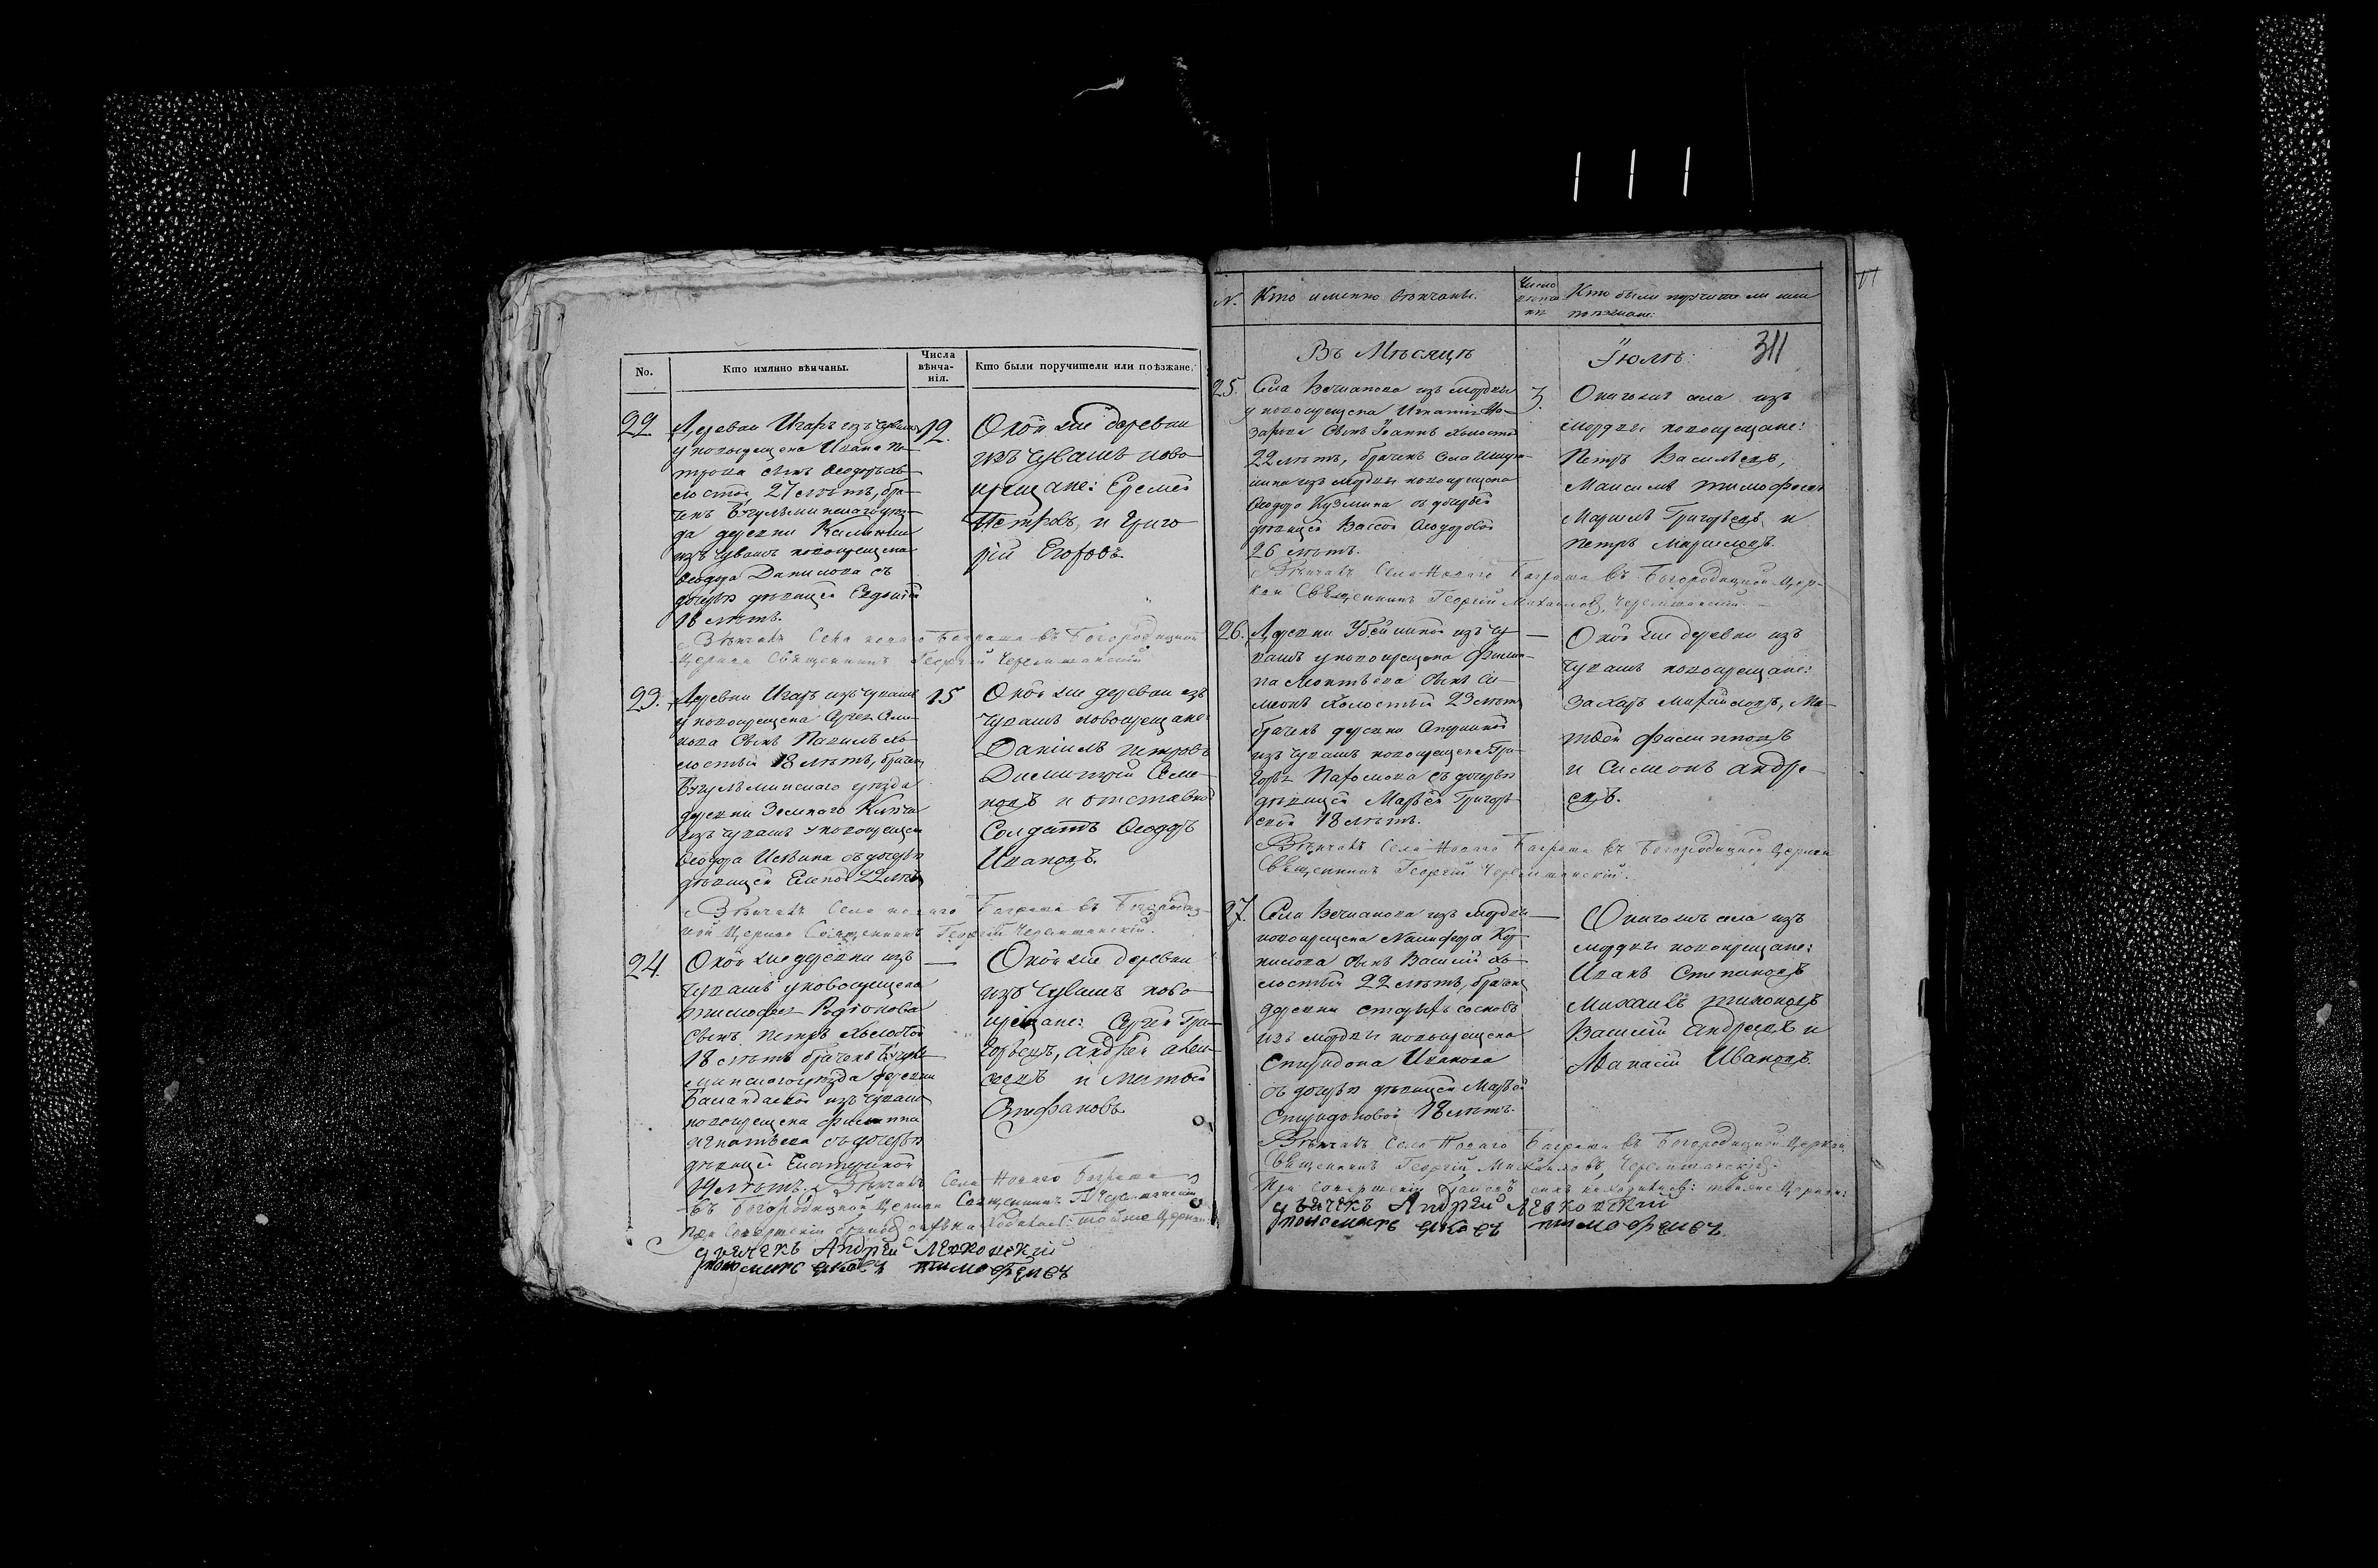 No.
Кто имянно вѣнчаны.
Числа
вѣнча-
нія.
Кто были поручители или поѣзжане.
22
Деревни Игаръ изъ чувашъ
у новокрещена Ивана Пе-
трова сынъ Ѳеодоръ хо-
лостой, 27 лѣтъ, бра-
ченъ Бугульминскаго уѣз-
да деревни
изъ чувашъ новокрещена
Ѳеодора Данилова съ
дочерью дѣвицей
18 лѣтъ.
12.
Оной же деревни
изъ чувашъ ново-
крещане: Еремей
Петровъ и Григо
рій Егоровъ
Вѣнчалъ Села новаго Баграша въ Богородицкой
Церкви Священникъ Георгій Черемшанскій
23.
Деревни Игаръ изъ чувашъ
у новокрещена Семе-
нова сынъ Павилъ хо-
лостый 18 лѣтъ, браченъ
Бугульминскаго уѣзда
деревни
изъ чувашъ у новокрещена
Ѳеодора съ дочерью
дѣвицей Еленой 22 лѣтъ
15
Оной же деревни изъ
чувашъ новокрещане
Даніилъ Петровъ
Димитрій Семе-
новъ и отставной
Солдатъ Ѳеодоръ
Ивановъ.
Вѣнчалъ Села новаго Баграша въ Богородиц-
кой Церкви Священникъ Георгій Черемшанскій.
24
Оной же деревни изъ
чувашъ у новокрещена
тимофея Родіонова
сынъ Петръ холостой
18 лѣтъ браченъ Бугуль-
минскаго уѣзда деревни
изъ чувашъ
новокрещена филиппа
Игнатьева съ дочерью
дѣвицей Екатериной
19 лѣтъ.
—
Оной же деревни
изъ чувашъ ново-
крещане: Сергей Гри-
горьевъ, андрей алек-
сеевъ и
Стефановъ
Вѣнчалъ Села Новаго Баграша
въ Богородицкой Церкви Священникъ Г Черемшанскій
При совершеніи браковъ тойже Церкви:
дьячекъ Андрей Левковскій
пономарь тимофеевъ
N.
Кто именно вѣнчаны.
Число
вѣнча
нія
Кто были поручители или
поѣзжане:
Въ Мѣсяцѣ
Іюлѣ
311
25.
Села изъ мордвы
у новокрещена Игнатія На-
зарова сынъ Іоаннъ холостый
22 лѣтъ, браченъ села
изъ мордвы новокрещена
Ѳеодора Кузмина съ дочерью
дѣвицей Вассой Ѳеодоровой
26 лѣтъ.
3.
Онагожъ села изъ
мордвы новокрещане:
Петръ Васильевъ,
Максимъ тимофеевъ
Григорьевъ и
Петръ
Вѣнчалъ Села Новаго Баграша въ Богородицкой Цер-
кви Священникъ Георгій Михайловъ, Черемшанскій.
26.
Деревни изъ чу-
вашъ у новокрещена филип-
па сынъ Си-
меонъ холостый 23 лѣтъ
браченъ деревни
изъ чувашъ новокрещена Гри-
горья съ дочерью
дѣвицей Марьей Григорь-
евой 18 лѣтъ.
—
Оной же деревни изъ
чувашъ новокрещане:
Захаръ Ма-
твей филипповъ
и Симеонъ андре-
евъ.
Вѣнчалъ Села Новаго Баграша въ Богородицкой Церкви
Священникъ Георгій Черемшанскій.
27.
Села изъ мордвы
новокрещена
сынъ Василій хо-
лостый 22 лѣтъ, браченъ
деревни старыхъ сосновъ
изъ мордвы новокрещена
Спиридона Иванова
съ дочерью дѣвицей Марьей
Спиридоновой 18 лѣтъ.
—
Онагожъ села изъ
мордвы новокрещане:
Иванъ Степановъ
Михаилъ тихоновъ
Василій андреевъ и
Аѳанасій Ивановъ.
Вѣнчалъ Села Новаго Баграша въ Богородицкой Церкви
Священникъ Георгій Михайловъ Черемшанскій.
При совершеніи браковъ тойже Церкви:
дьячекъ Андрей Левковскій
пономарь тимофеевъ.